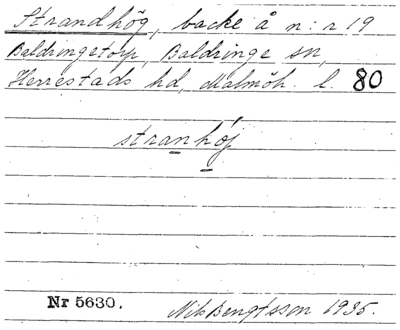 Strandhög, backe å n:r 19
Baldringetorp, Baldringe sn,
Herrestads hd, Malmöh. l. 80
stranhöj
Nr 5630. Nils Bengtsson 1935.